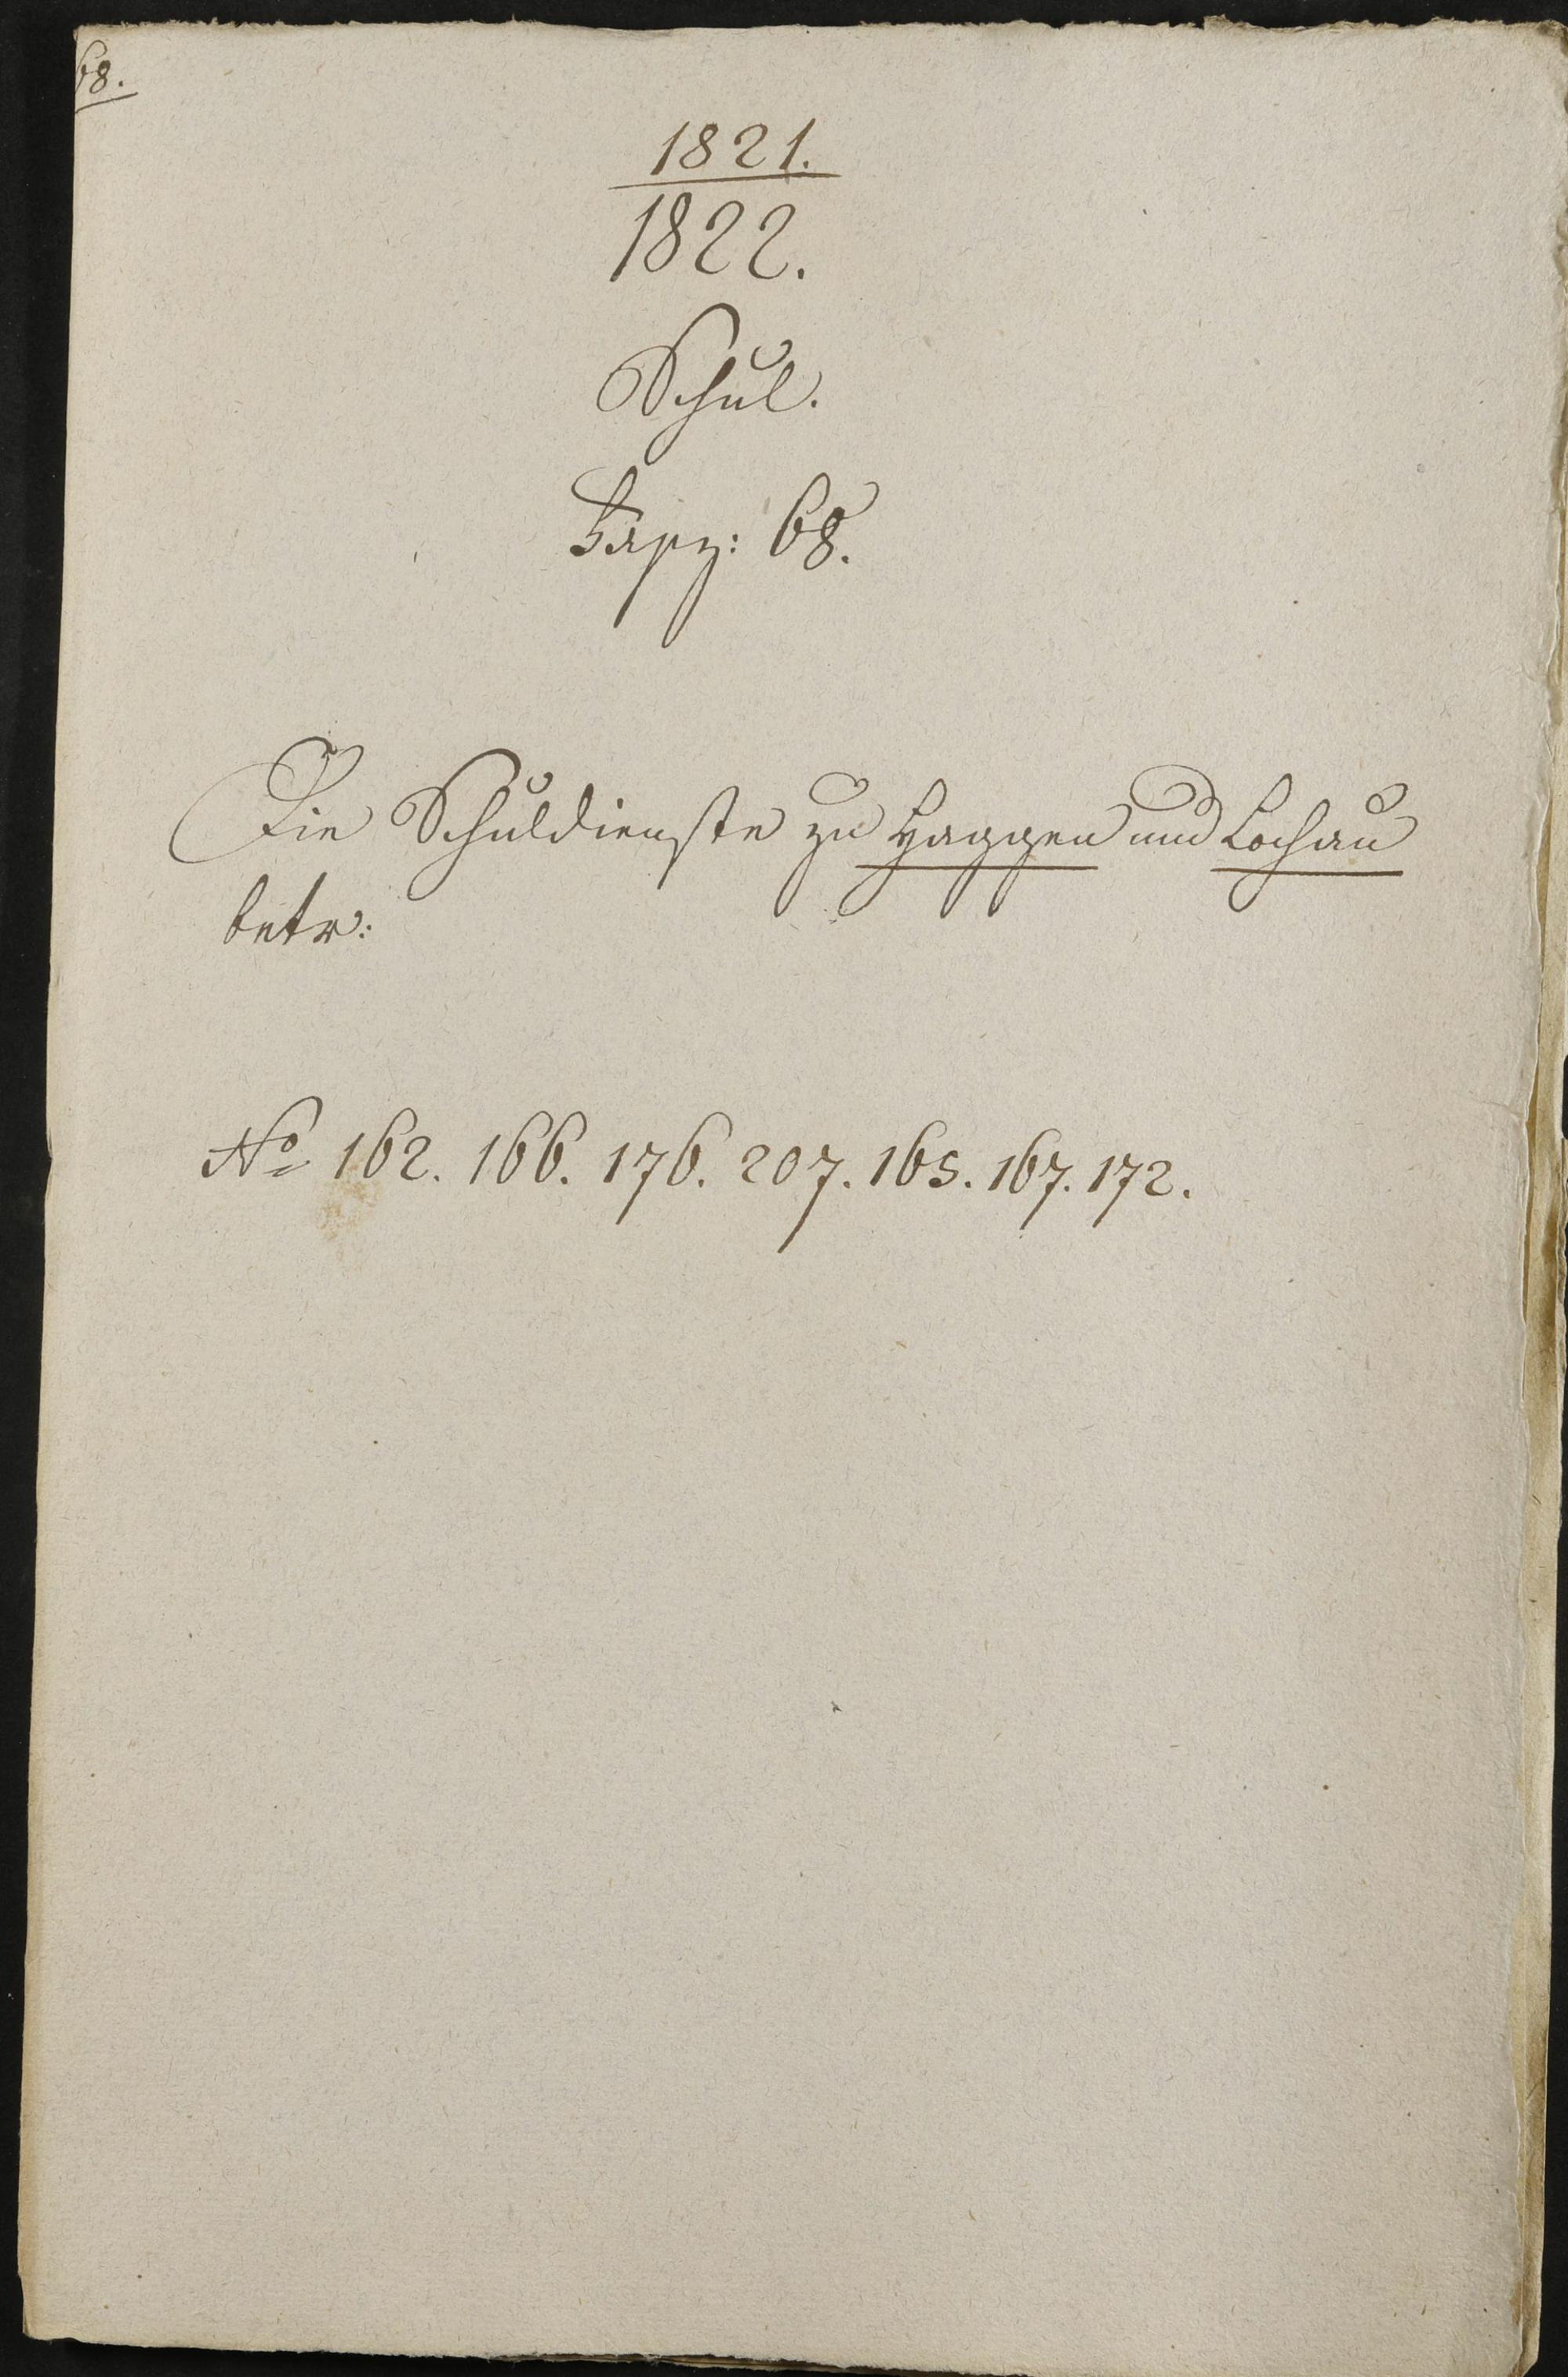 68.
1821.
1822.
Schul.
Fasz: 68.
Die Schuldienste zu Haggen und Lochau
betr:
No 162. 166. 176. 207. 165. 167. 172.